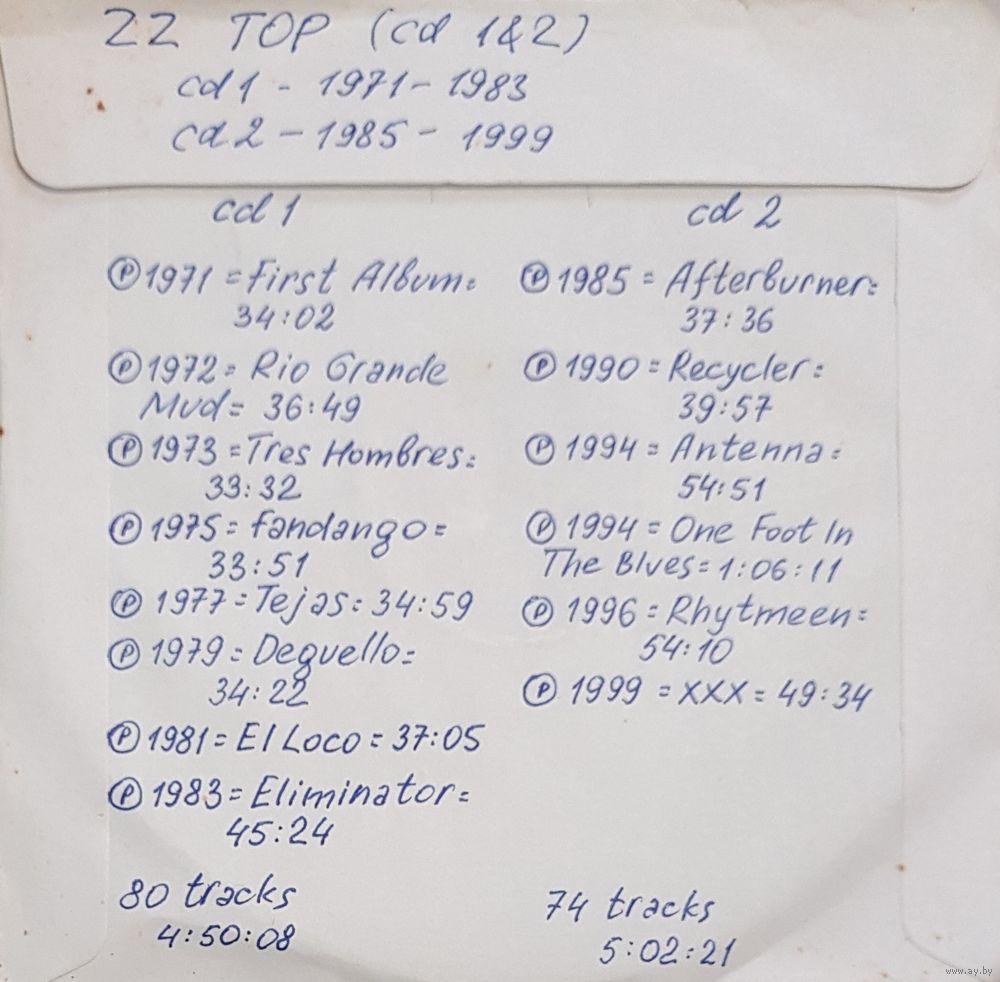 ZZ TOP (cd 1&2)
cd 1 - 1971 - 1983
cd 2 - 1985 - 1999
cd 1
Ⓟ 1971 = First Album =
34:02
Ⓟ 1972 = Rio Grande
Mud = 36:49
Ⓟ 1973 = Tres Hombres =
33:32
Ⓟ 1975 = Fandango =
33:51
Ⓟ 1977 = Tejas = 34:59
Ⓟ 1979 = Deguello =
34:22
Ⓟ 1981 = El Loco = 37:05
Ⓟ 1983 = Eliminator =
45:24
80 tracks
4:50:08
cd 2
Ⓟ 1985 = Afterburner =
37:36
Ⓟ 1990 = Recycler =
39:57
Ⓟ 1994 = Antenna =
54:51
Ⓟ 1994 = One Foot In
The Blues = 1:06:11
Ⓟ 1996 = Rhytmeen =
54:10
Ⓟ 1999 = XXX = 49:34
74 tracks
5:02:21
www.ay.by